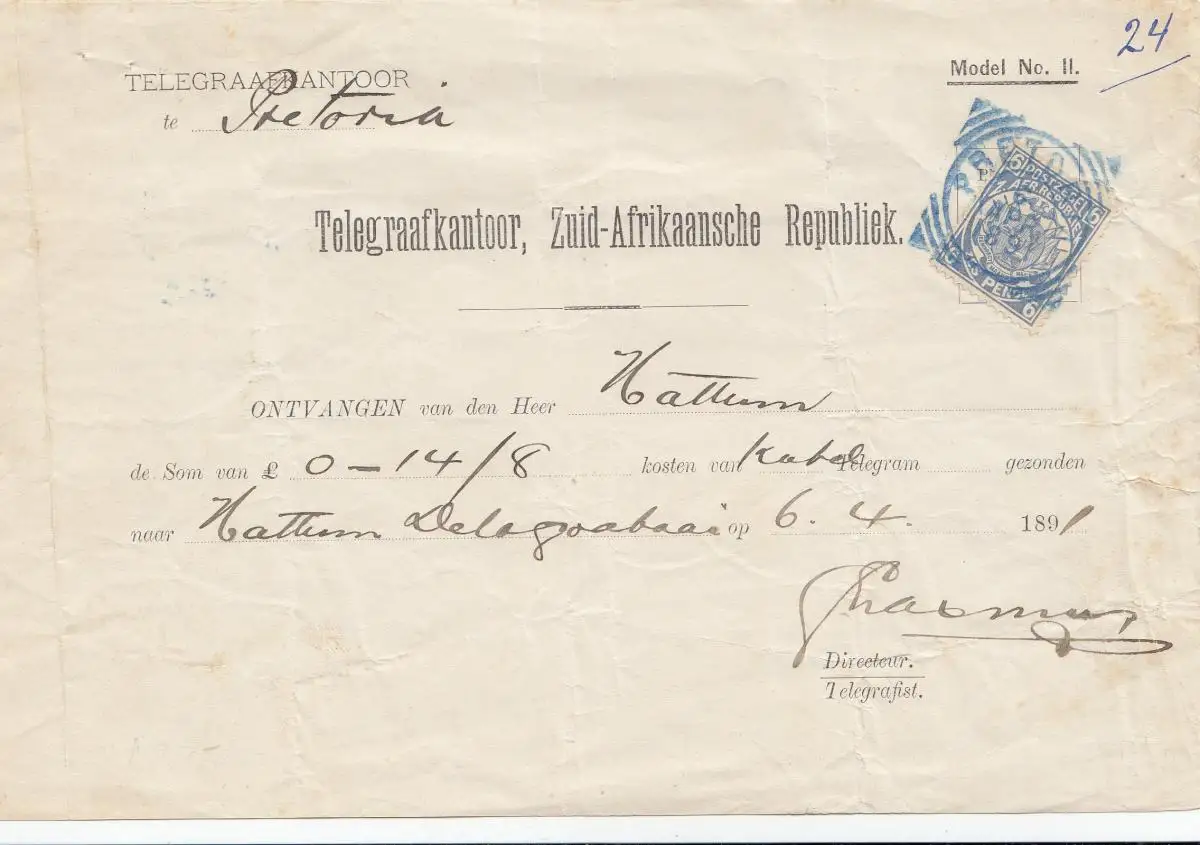 24
TELEGRAAFKANTOOR
Model No. II.
te Pretoria
PRETO
6 POSTZEGEL 6
Z. AFR. REPUBLIEK
ZES PENCE
6
Telegraafkantoor, Zuid-Afrikaansche Republiek.
ONTVANGEN van den Heer Hattum
de Som van £ 0-14/8 kosten van Kabel Telegram gezonden
naar Hattum Delagoabaai op 6.4. 1891
Erasmus
Directeur.
Telegrafist.